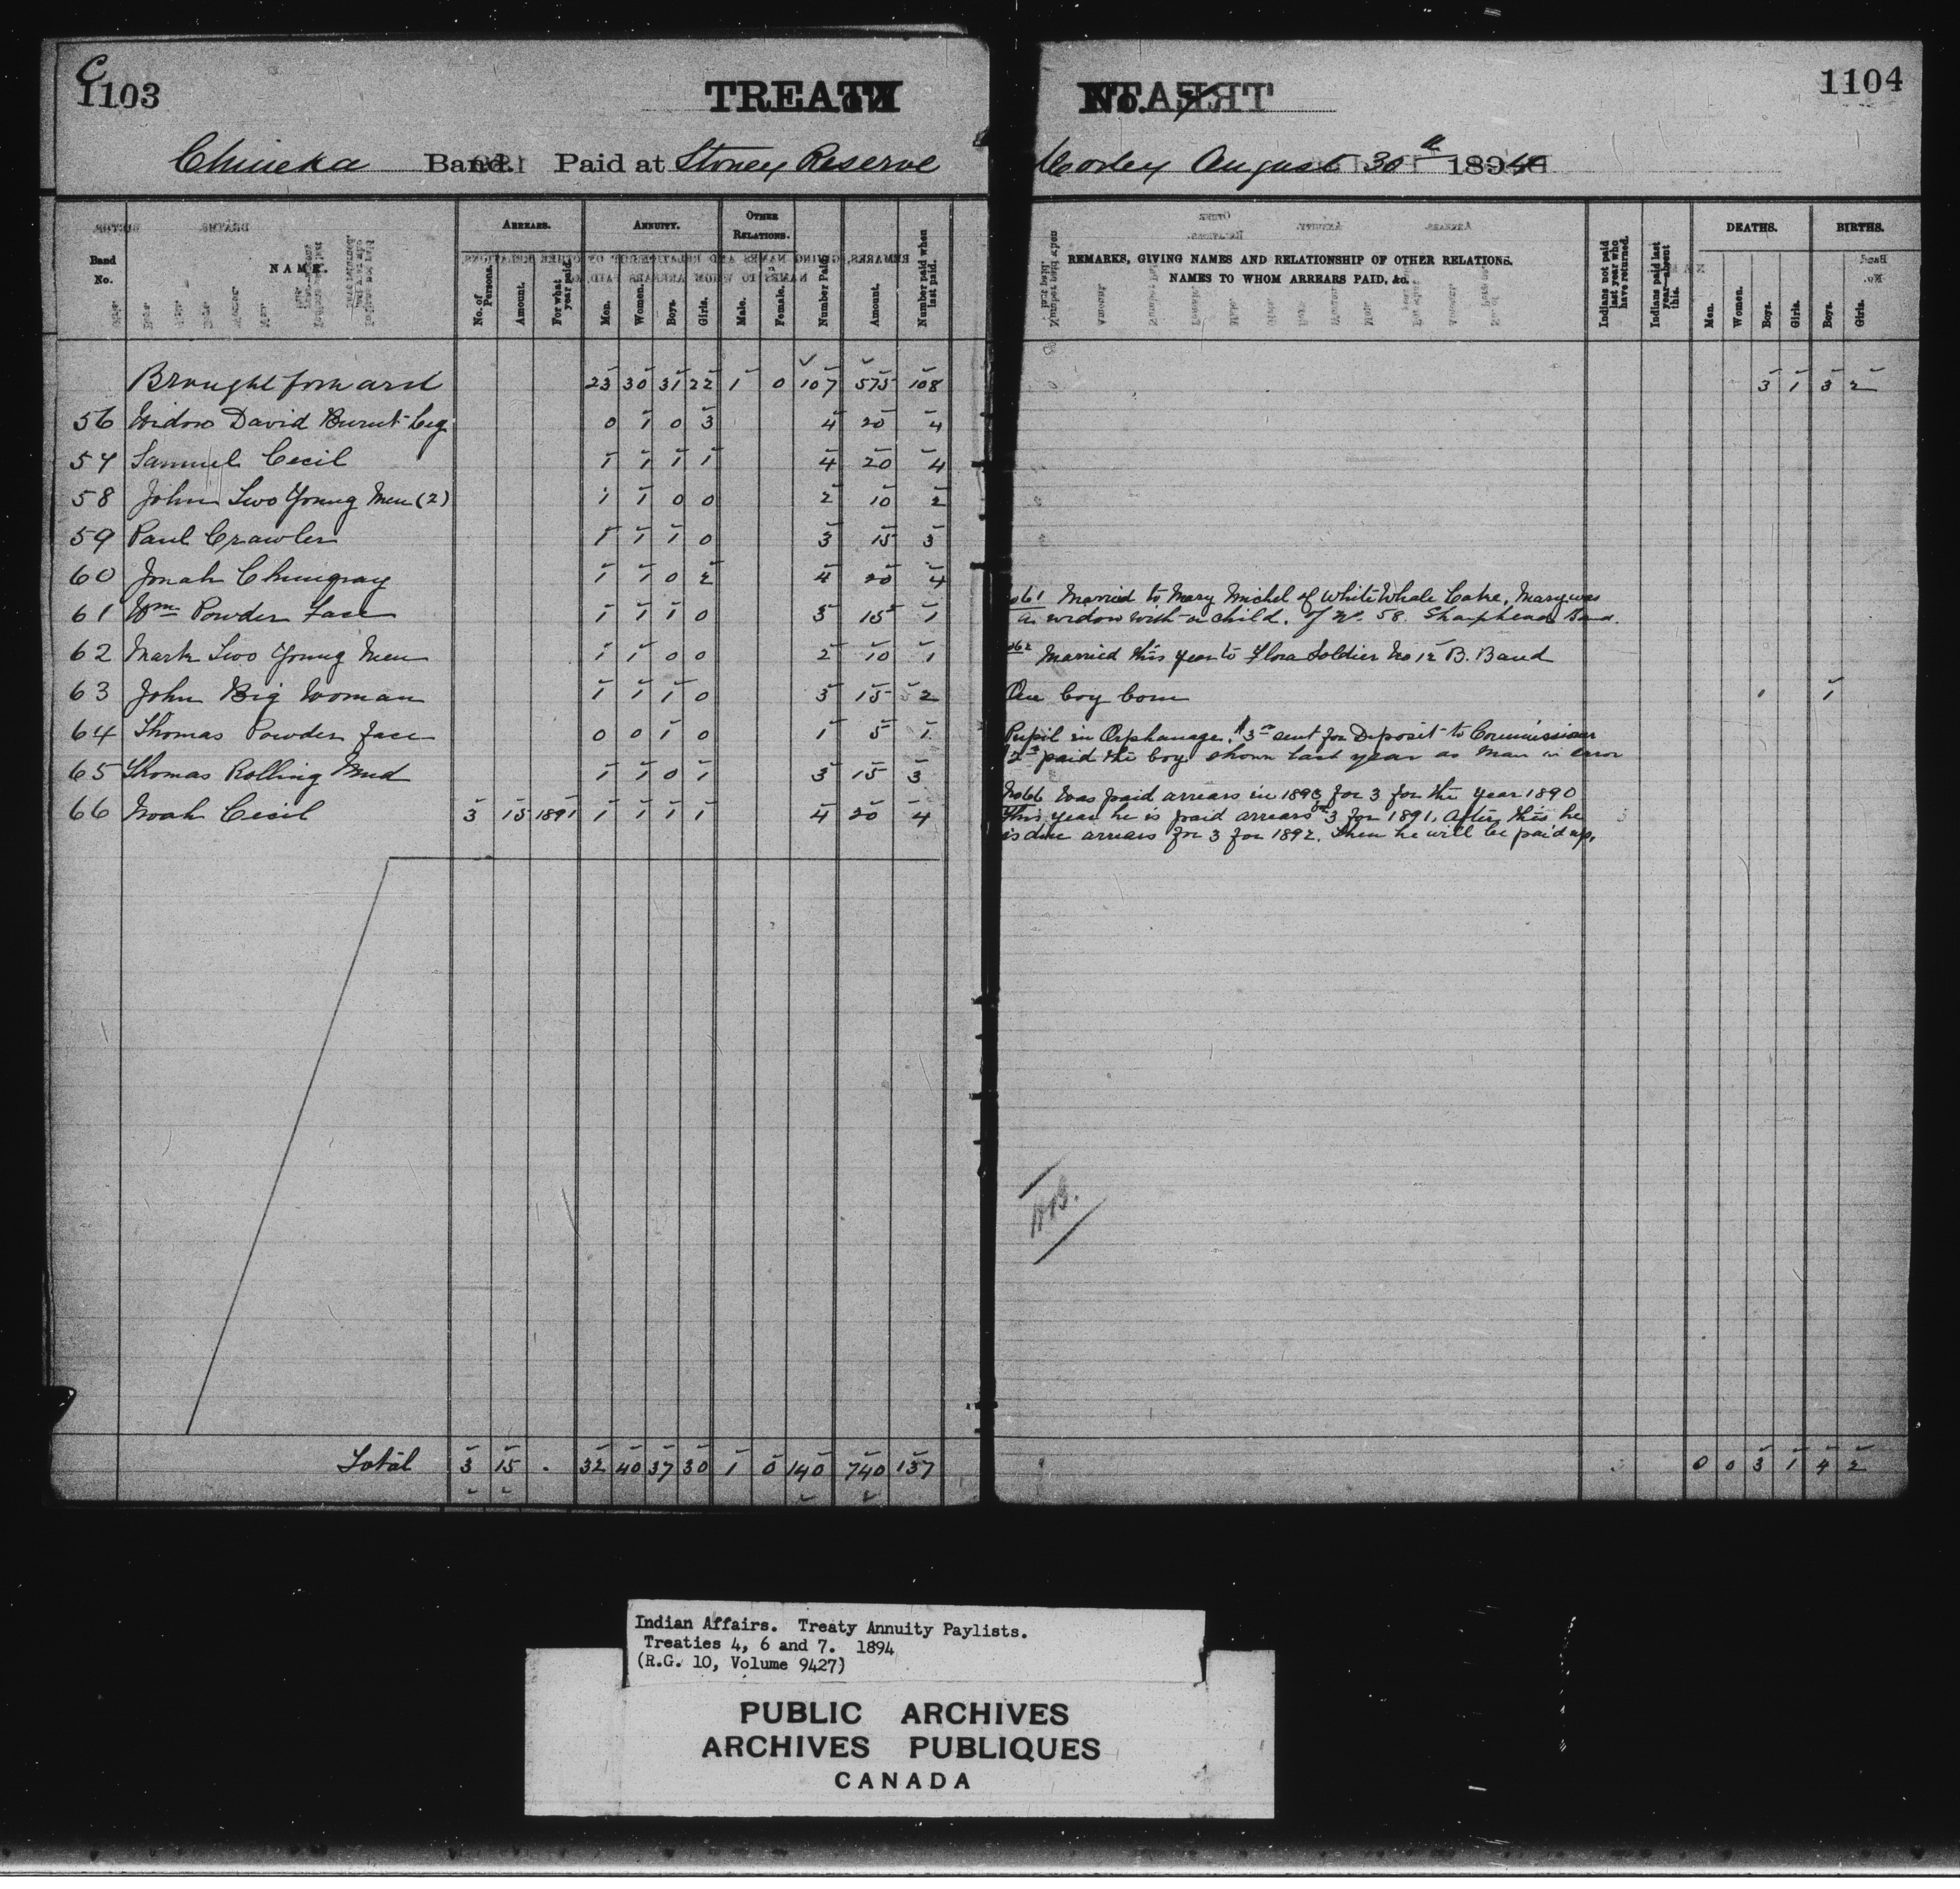 C
1103
TREATY
Chineka Band. Paid at Stoney Reserve
Band No.
NAME.
ARREARS.
No. of Persons.
Amount.
For what year paid
ANNUITY.
Men.
Women.
Boys.
Girls.
OTHER RELATIONS.
Male.
Female.
Number Paid
Amount.
Number paid when last paid.
Brought forward 23 30 31 22 1 0 107 575 108
56 Widow David Burnt Leg 0 1 0 3 4 20 4
57 Samuel Cecil 1 1 1 1 4 20 4
58 John Two Young Men (2) 1 1 0 0 2 10 2
59 Paul Crawler 1 1 1 0 3 15 3
60 Jonah Chungray 1 1 0 2 4 20 4
61 Wm Powder Face 1 1 1 0 3 15 1
62 Mark Two Young Men 1 1 0 0 2 10 1
63 John Big Woman 1 1 1 0 3 15 2
64 Thomas Powder face 0 0 1 0 1 5 1
65 Thomas Rolling Mud 1 1 0 1 3 15 3
66 Noah Cecil 3 15 1891 1 1 1 1 4 20 4
Total 3 15 . 32 40 37 30 1 0 140 740 137
1104
No. 7
Morley August 30th 1894
REMARKS, GIVING NAMES AND RELATIONSHIP OF OTHER RELATIONS.
NAMES TO WHOM ARREARS PAID, &c.
Indians not paid last year who have returned.
Indians paid last year—absent this.
DEATHS.
Men.
Women.
Boys.
Girls.
BIRTHS.
Boys.
Girls.
3 1 3 2
No 61 Married to Mary Michel of White Whale Lake, Mary was
a widow with a child. of No. 58. Sharphead Band.
62 Married this year to Flora Soldier No 12 B. Band
One boy born 1 1
Pupil in Orphanage. $3 sent for Deposit to Commissioner
$2 paid the boy shown last year as man in error
No 66 Was paid arrears in 1893 for 3 for the year 1890
This year he is paid arrears 3 for 1891. After this he
is due arrears for 3 for 1892. Then he will be paid up.
0 0 3 1 4 2
Indian Affairs. Treaty Annuity Paylists.
Treaties 4, 6 and 7. 1894
(R.G. 10, Volume 9427)
PUBLIC ARCHIVES
ARCHIVES PUBLIQUES
CANADA